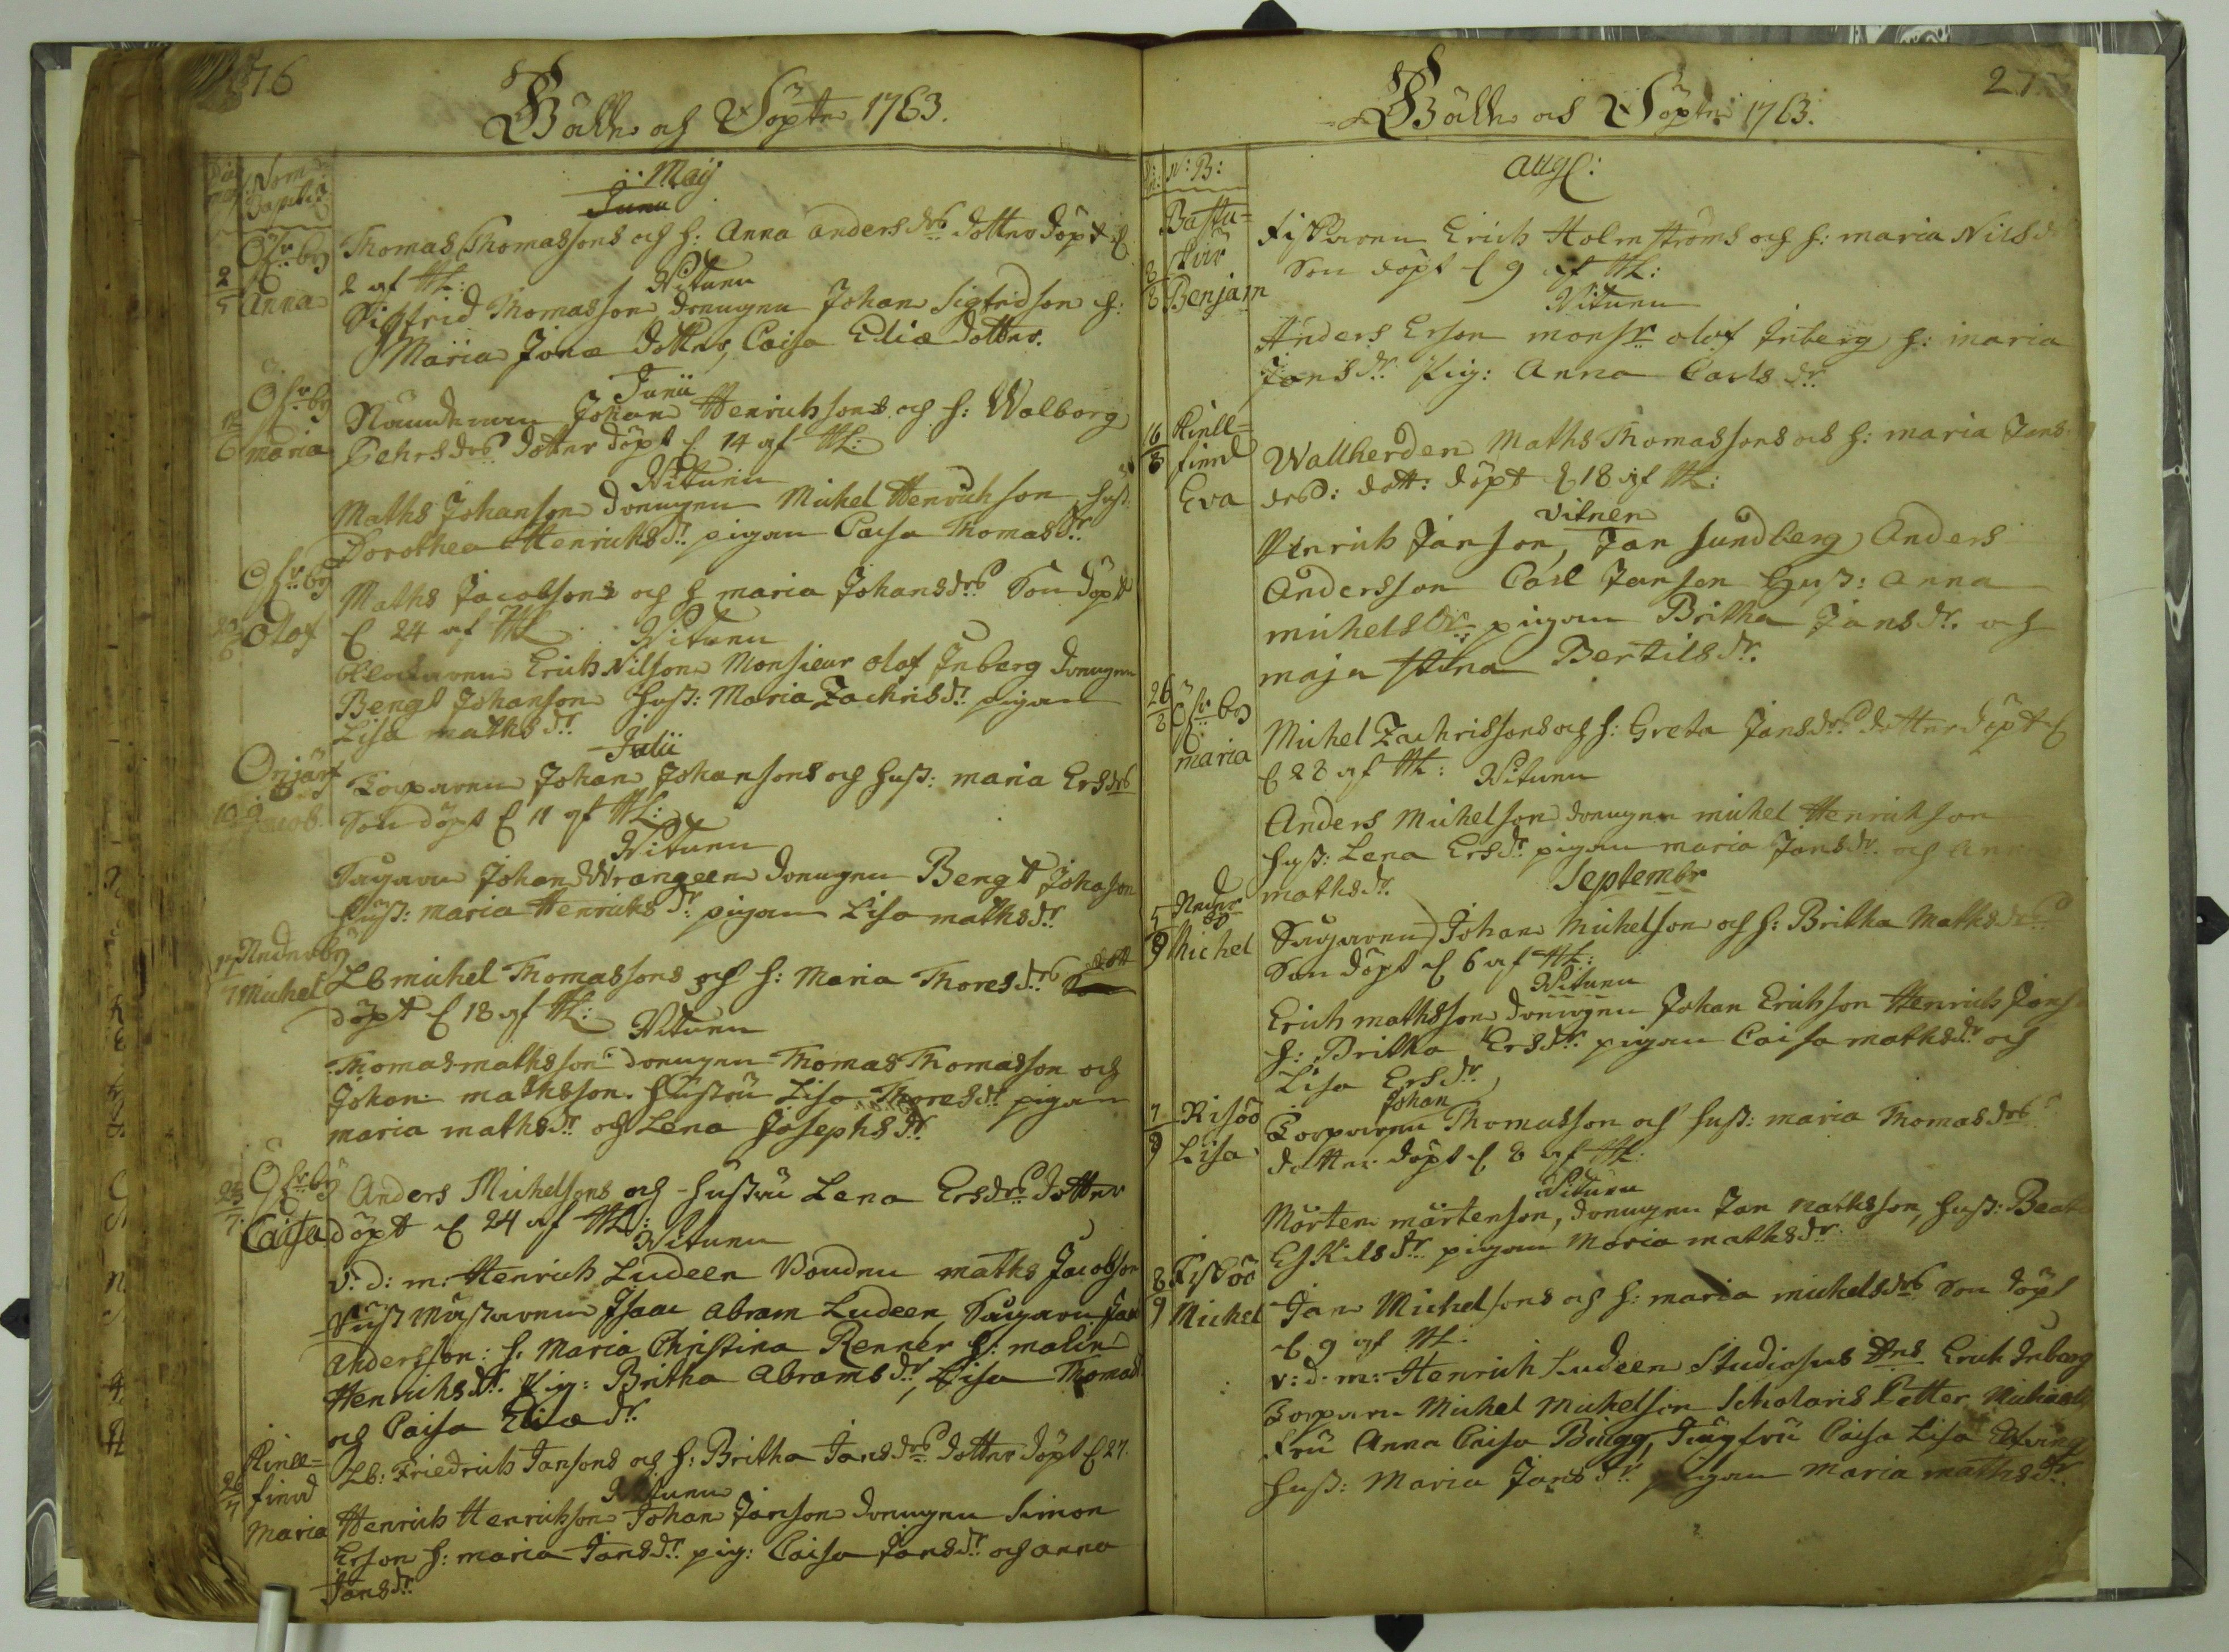 76
Födde och Döpte 1763.
Dag
Nom
May
Junii
Öfr by
2/5 Anna
Thomas Thomassons och h: Anna anders drs dotter döpt d
2 af HL:
Vitnen
Sigfrid Thomasson drengen Johan Sigfridson h:
Maria Jonæ dotter, Caisa Eliæ dotter.
Junii
Öfr by
12/6 maria
Nämdeman Johan Henrichsons och h: Walborg
Pehrs drs dotter döpt d 14 af HL:
Vitnen
Maths Johanson drengen Michel Henrichson hust:
Dorothea Henrichsdr. pigan Caisa Thomasdr.
Öfr by
Olof
Maths Jacobsons och h maria Johansdrs Son döpt
d 24 af HL
Vitnen
Klockaren Erich Nilson Monsieur Olof Inberg drengen
Bengt Johanson hust: Maria Zachrisdr. pigan
Lisa mathsdr.
Julii
Onjärf
10 Jacob
Torparen Johan Johansons och hust: maria Ersdrs
Son döpt d 11 af HL:
Vitnen
Sågaren Johan Wrangeen drengen Bengt Johason
hust: maria Henrichsdr. pigan Lisa mathsdr
Nederby
17/7 Michel
Lb michel Thomassons och h: Maria Thoresdrs dott
döpt d 18 af HL:
Vitnen
Thomas mathsson drengen Thomas Thomasson och
Johan mathsson. hustru Lisa Thoresdr. pigan
maria mathsdr. och Lena Josephsdr.
Öfr by
23/7 Caisa
Anders Michelsons och hustru Lena Ersdrs dotter
döpt d 24 af HL:
Vitnen
v: d: m: Henrich Ludeen Bonden maths Jacobson
Byst Mästaren Isaac Abram Ludeen, Sågaren Jan
Andersson: h. Maria Christina Renner h: malin
Henrichsdr. Pig: Britha Abramsdr, Lisa Thomasd
och Caisa Eliædr.
Kinll=
finnd
26/7 Maria
Lb: Friedrich Jansons och h: Britha Jansdrs dotter döpt d 27.
Vitnen
Henrich Henrichson Johan Janson drengen Simon
Erson h: maria Jansdr. pig: Caisa Jansdr och anna
Jansdr.
27
Födde och Döpte 1763.
N: B:
Augs:
Bastu=
skär
8/8 Benjam
Fiskaren Erich Holmströms och h: maria Nils dr
Son döpt d 9 af HL:
Vitnen
Anders Erson monsr olof Inberg h: maria
Jansdr. Pig: Anna Carlsdr.
16/8 Kinll=
finnd
Eva
Wallherden Maths Thomassons och h: maria Jans
drs: dott: döpt d 18 af HL:
vitnen
Henrich Janson, Jan Sundberg, Anders
Andersson Carl Janson Hust: Anna
michelsdr. pigan Britha Jansdr. och
maja stina Bertilsdr.
26/8 Öfr by
maria
Michel Zachrissons och h: Greta Jansdrs dotter döpt d
d 28 af HL:
Vitnen
Anders Michelson drengen michel Henrichson
hust: Lena Ersdr. pigan maria Jansdr. och Ann
mathsdr.
Septembr
5/9 Neder
by
Michel
Sågaren Johan Michelson och h: Britha Mathsdrs
Son döpt d 6 af HL:
Vitnen
Erich mathsson drengen Johan Erichson Henrich Jans
h: Britha Ersdr. pigan Caisa mathsdr och
Lisa Ersdr.
7/9 Risöö
Lisa
Johan
Torparen Thomasson och hust: maria Thomasdrs
dotter döpt d 8 af HL:
Vitnen
Mårten mårtenson, drengen Jan mathsson, hust: Beata
Eskilsdr. pigan Maria mathsdr.
8/9 Fisköö
Michel
Jan Michelsons och h: maria michelsdrs Son döpt
d 9 af HL.
v: d: m: Henrich Ludeen Studiosus Hrs Erich Inberg
Torparen Michel Michelson Scholaris Petter Michaels
Fru Anna Caisa Bingg, Jungfru Caisa Lisa
hust: Maria Jansdr. pigan Maria mathsdr.